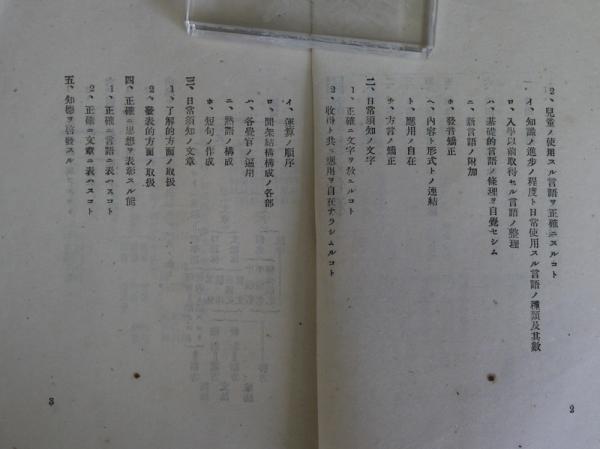 2、兒童ノ使用スル言語ヲ正確ニスルコト
イ、知識ノ進步ノ程度ト日常使用スル言語ノ種類及其數
ロ、入學以前取得セル言語ノ整理
ハ、基礎的言語ノ條理ヲ自覺セシム
ニ、新言語ノ附加
ホ、發音矯正
ヘ、內容ト形式トノ連結
ト、應用ノ自在
チ、方言ノ矯正
二、日常須知ノ文字
1、正確ニ文字ヲ敎ユルコト
2、收得ト共ニ應用ヲ自在ナラシムルコト
2
イ、運算ノ順序
ロ、間架結構構成ノ各部
ハ、各覺官ノ運用
ニ、熟語ノ構成
ホ、短句ノ作成
三、日常須知ノ文章
1、了解的方面ノ取扱
2、發表的方面ノ取扱
四、正確ニ思想ヲ表彰スル能
1、正確ニ言語ニ表ハスコト
2、正確ニ文章ニ表ハスコト
五、知德ヲ啓發スル
3